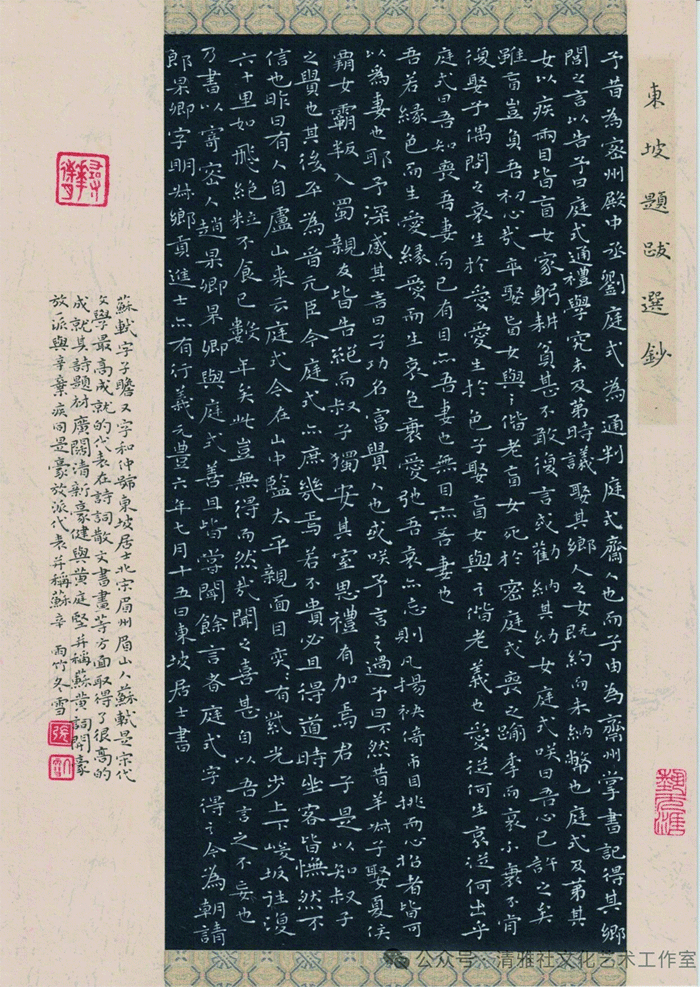 東坡題跋選鈔
予昔為密州殿中丞劉庭式為通判庭式齊人也而子由為齊州掌書記得其鄉
閭之言以告予曰庭式通禮學究未及第時議娶其鄉人之女既約而未納幣也庭式及第其
女以疾兩目皆盲女家躬耕貧甚不敢復言或勸納其幼女庭式咲曰吾心已許之矣
雖盲豈負吾初心哉卒娶盲女與之偕老盲女死於密庭式喪之踰季而哀不衰不肯
復娶予偶問之哀生於愛愛生於色子娶盲女與之偕老義也愛從何生哀從何出乎
庭式曰吾知喪吾妻而已有目亦吾妻也無目亦吾妻也
吾若緣色而生愛緣愛而生哀色衰愛弛吾哀亦忘則凡揚袂倚市目挑而心招者皆可
以為妻也耶予深感其言曰子功名富貴人也或咲予言之過予曰不然昔羊叔子娶夏侯
霸女霸叛入蜀親友皆告絕而叔子獨安其室恩禮有加焉君子是以知叔子
之貴也其後卒為晉元臣今庭式亦庶幾焉若不貴必且得道時坐客皆憮然不
信也昨日有人自廬山来云庭式今在山中監太平親面目奕〻有紫光步上下峻坂往復
六十里如飛絕粒不食已數年矣此豈無得而然哉聞之喜甚自以吾言之不妄也
乃書以寄密人趙杲卿杲卿與庭式善且皆嘗聞餘言者庭式字得之今為朝請
郎杲卿字明叔鄉貢進士亦有行義元豐六年七月十五日東坡居士書
蘇軾字子瞻又字和仲號東坡居士北宗眉州眉山人蘇軾是宗代
文學最高成就的代表在詩詞散文書畫等方面取得了很高的
成就其詩題材廣闊清新豪健與黃庭堅并稱蘇黃詞開豪
放一派與辛棄疾同是豪放派代表并稱蘇辛 雨竹冬雪
張
公众号·清雅社文化艺术工作室